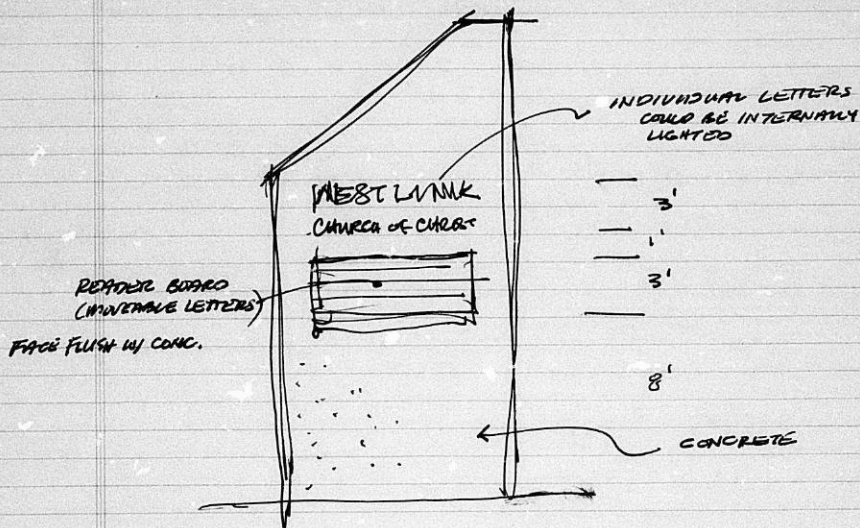 INDIVIDUAL LETTERS
COULD BE INTERNALLY
LIGHTED
WEST
CHURCH OF CHRIST
READER BOARD
(MOVEABLE LETTERS)
FACE FLUSH W/ CONC.
3'
1'
3'
8'
CONCRETE